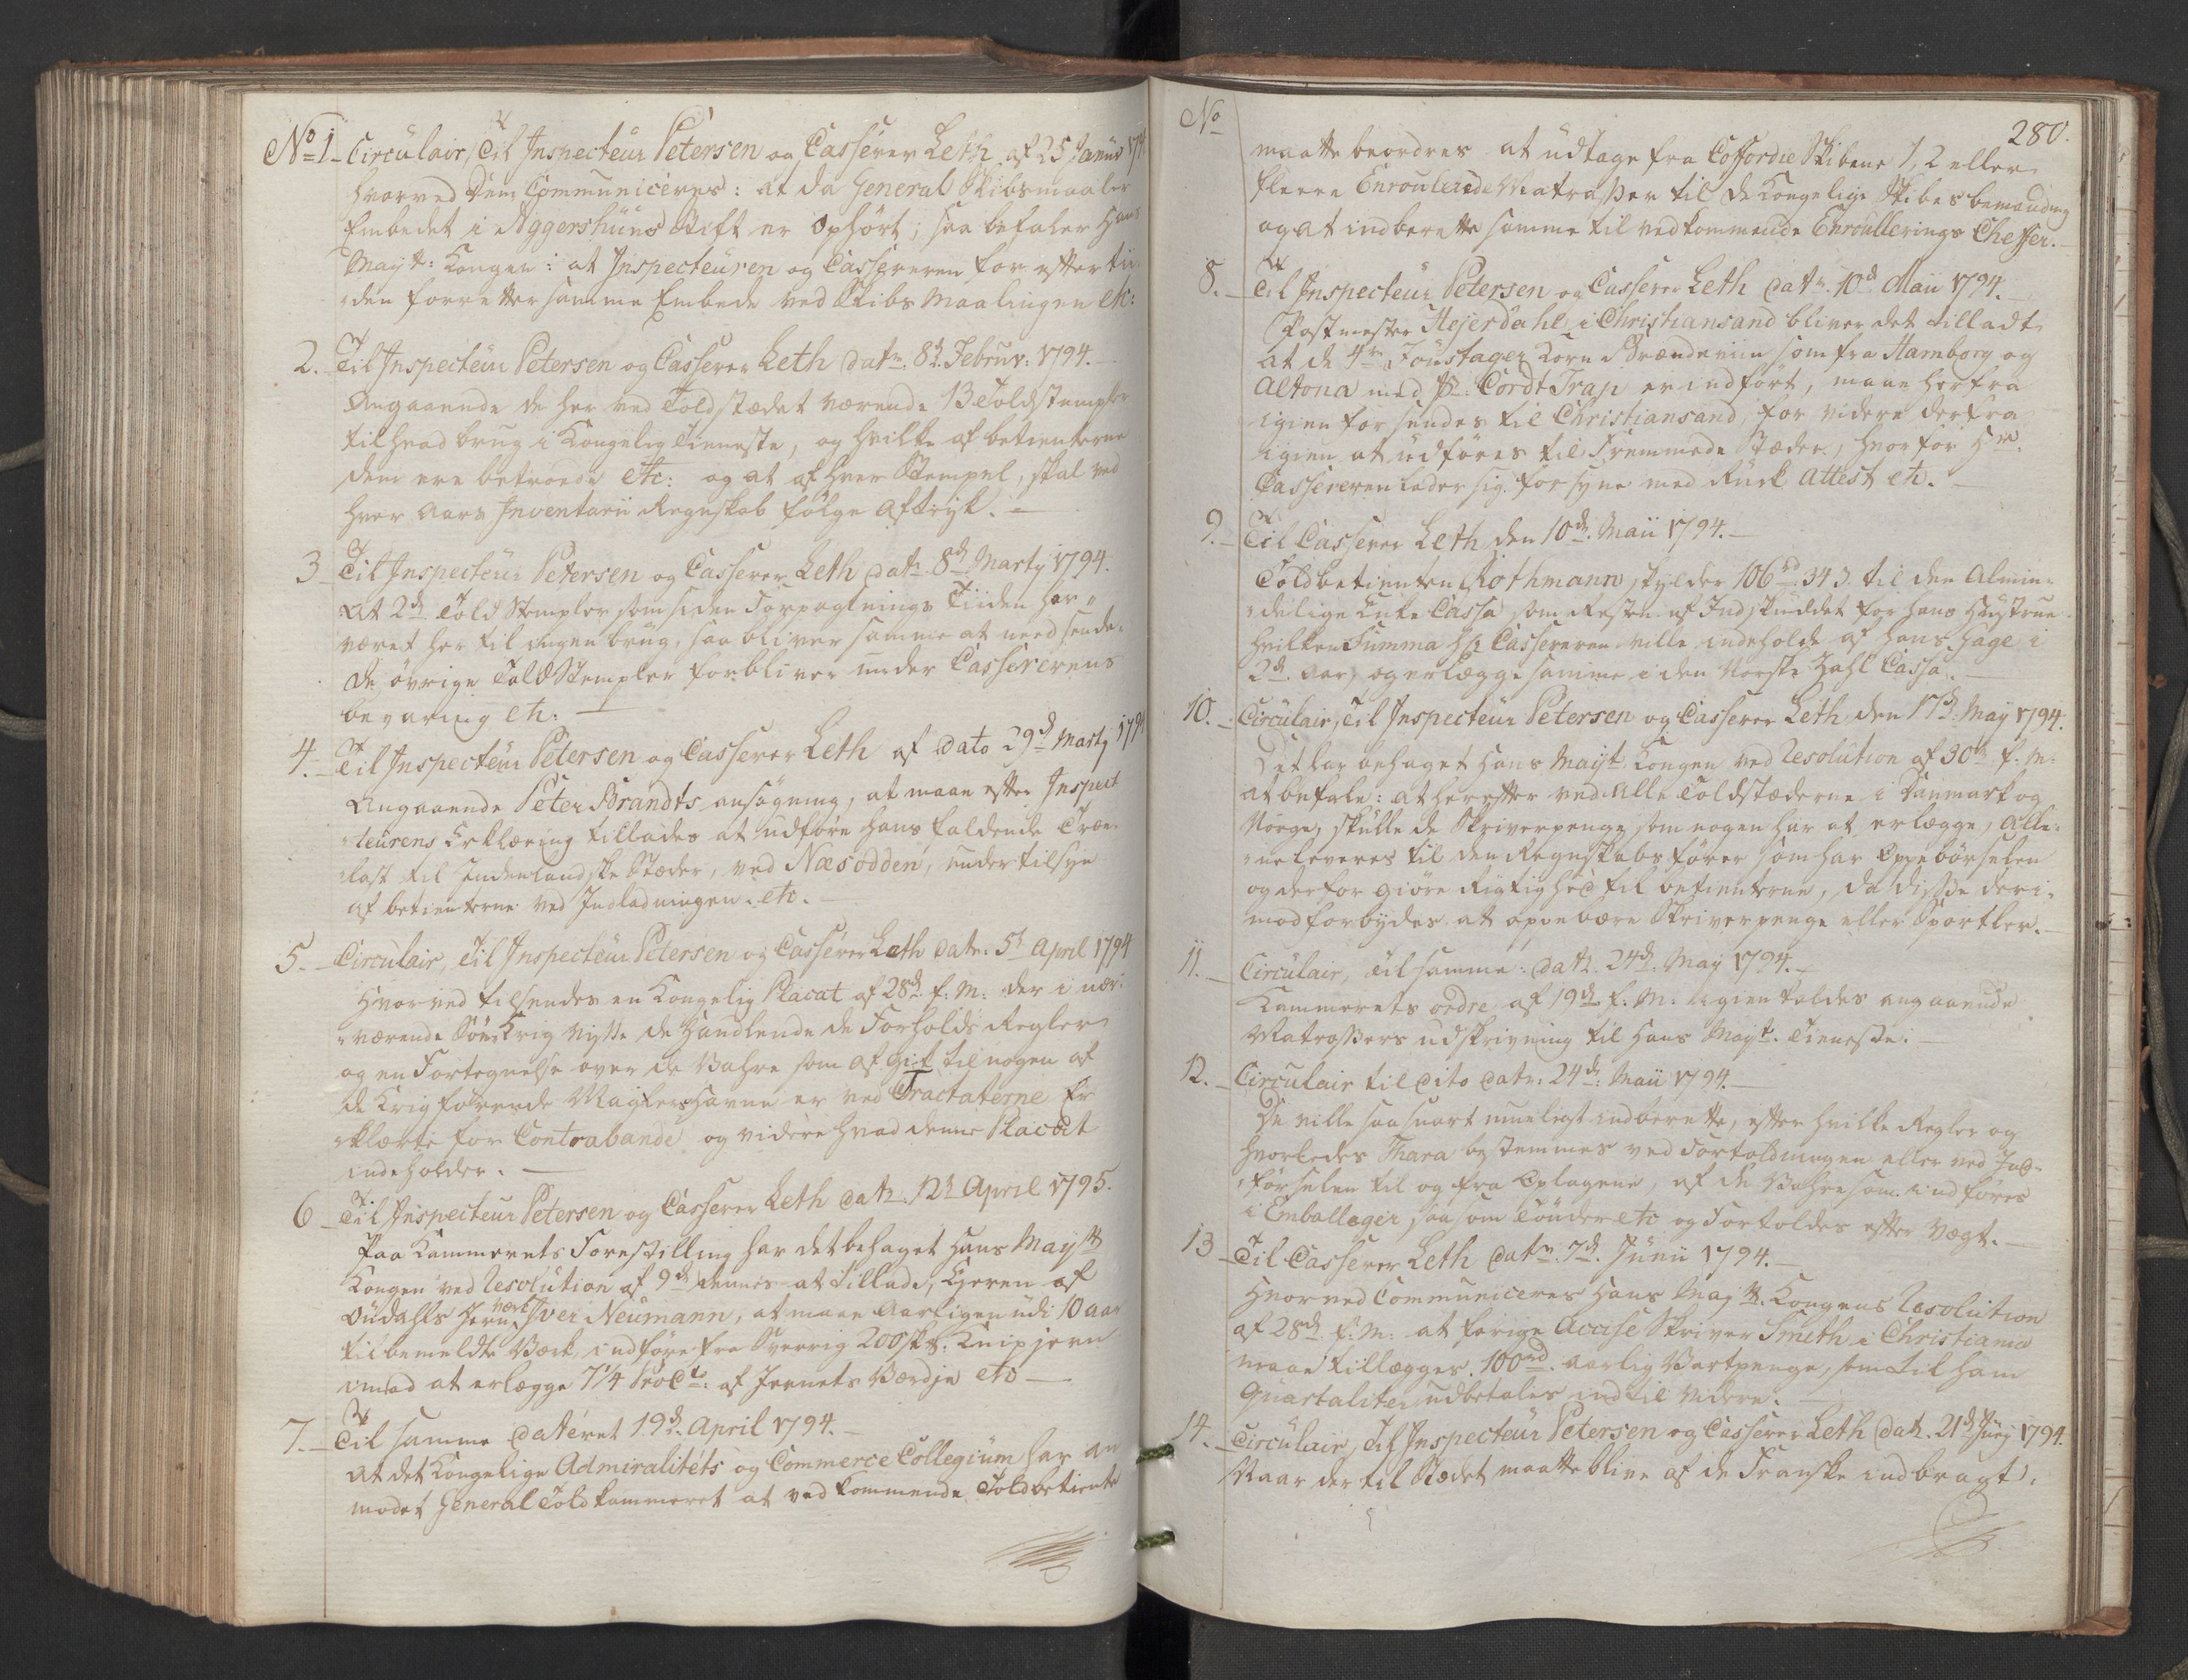 No 1. Circulair, Til Inspecteur Petersen og Casserer Leth af 25 Januar 179
hvorved Dem Communiceres: at da General Skibsmaaler
Embedet i Aggershuus Stift er Ophørt, saa befaler Hans
Mayt: Kongen: at Inspecteuren og Cassereren for eftertii-
den forretter samme Embede ved Skibs Maalingen etc:
2. Til Inspecteur Petersen og Casserer Leth dat. 8d Februr: 1794.
Angaaende de her ved Toldstædet værende 13 Toldstempler
til hvad brug i Kongelig Tieneste, og hvilke af betienterne
dem ere betroede etc: og at af hver Stempel, skal ved
hver Aars Inventarii Regnskab følge Aftryk.
3 Til Inspecteur Petersen og Casserer Leth dat 8d Marty 1794.
At 2de Told Stempler som siden Forpagtnings Tiiden har
været her til ingen brug, saa bliver samme at needsende.
De øvrige Told Stempler forbliver under Cassererens
bevaring etc.
4. Til Inspecteur Petersen og Casserer Leth af Dato 29d Marty 179
Angaaende Peter Brandts ansøgning, at maae efter Inspect
teurens Erklæring tillades at udføre hans faldende Træe-
last til Indenlandske Stæder, ved Næsodden, under tilsyn
af betienterne ved Indladningen etc.
5. Circulair, Til Inspecteur Petersen og Casserer Leth dat. 5t April 1794
Hvorved tilsendes en Kongelig Placat af 28d f: M: der i nær-
værende Søe Krig Viise de Handlende de Forholds Regler
og en Fortegnelse over de Vahre som af gik til nogen af
de Krigførende Magters Havne er ved Tractaterne Er
klærte for Contrabande og videre hvad denne Placat
indeholder.
6 Til Inspecteur Petersen og Casserer Leth dat. 12t April 1795.
Paa Kammerets Forestilling har det behaget Hans Mayt
Kongen ved Resolution af 9d dennes at tillade, Ejeren af
Oudahls Jern værk Iver Neumann, at maae Aarligen udi 10 aar
til bemeldte Værk, indføre fra Sverrig 200 sk. Knipjern
imod at erlægge 7 1/4 ProCt: af Jernets Værdie etc
7. Til samme Dateret 19d. April 1794.
At det Kongelige Admiralitets og Commerce Collegium har an
modet General Toldkammeret at vedkommende Toldbetiente
No
280.
maatte beordres at udtage fra Coffardie Skibene 1, 2 eller
fleere Enroullerede Matrosser til de Kongelige Skibes bemanding
og at indberette samme til vedkommende Enroullerings Cheffer.
8. Til Inspecteur Petersen og Casserer Leth dat. 10d Maii 1794.
Postmester Hejerdahl i Christiansand bliver det tilladt
at de 4re Foustager Korn Brændeviin som fra Hamborg og
Altona med Cordt Trap er indført, maae herfra
igien forsendes til Christiansand, for videre derfra
igien at udføres til Fremmede Stæder, hvorfor Hr.
Cassereren lader sig forsyne med Rück Attest etc.
9. Til Casserer Leth den 10d. Maii 1794.
Toldbetienten Rothmann skylder 106rd 34 s. til den Almin-
delige Enke Cassa som Resten af Indskuddet for hans Hustrue
hvilken Summa Hr Cassereren ville indeholde af hans Gage i
2de Aar, og erlægge samme i den Norske Zahl Cassa.
10. Circulair, Til Inspecteur Petersen og Casserer Leth den 17d May 1794.
Det har behaget Hans Mayt Kongen ved Resolution af 30t f: M:
at befale: at herefter ved alle Toldstæderne i Danmark og
Norge, skulle de Skriverpenge som nogen har at erlægge, alle-
ne leveres til den Regnskabsfører som har Oppebørselen
og derfor giøre Rigtighed til betienterne, da disse deri-
mod forbydes at oppebære Skriverpenge eller Sportler.
11. Circulair, Til samme: dat. 24d. May 1794.
Kammerets ordre af 19d f: M: igienkaldes angaaende
Matrossers udskrivning til Hans Mayt. Tieneste.
12. Circulair til Dito dat: 24d: Maii 1794.
De ville saa snart mueligt indberette, efter hvilke Regler og
hvorledes Thara bestemmes ved Fortoldningen eller ved Ind-
førselen til og fra Oplagene, af de Vahre som indføres
i Emballager saasom Tønder etc og Fortoldes efter Vægt.
13 Til Casserer Leth dat. 7d. Junii 1794.
Hvorved Communiceres Hans Mayts. Kongens Resolution
af 28d f: M: at forrige Accise Skriver Smith i Christiania
maae tillægges 100rd. aarlig Vartpenge, som til ham
Quartaliter udbetales indtil Videre.
14. Circulair, Til Inspecteur Petersen og Casserer Leth dat. 21d Juny 1794.
Naar der til Stædet maatte blive af de Franske indbragt